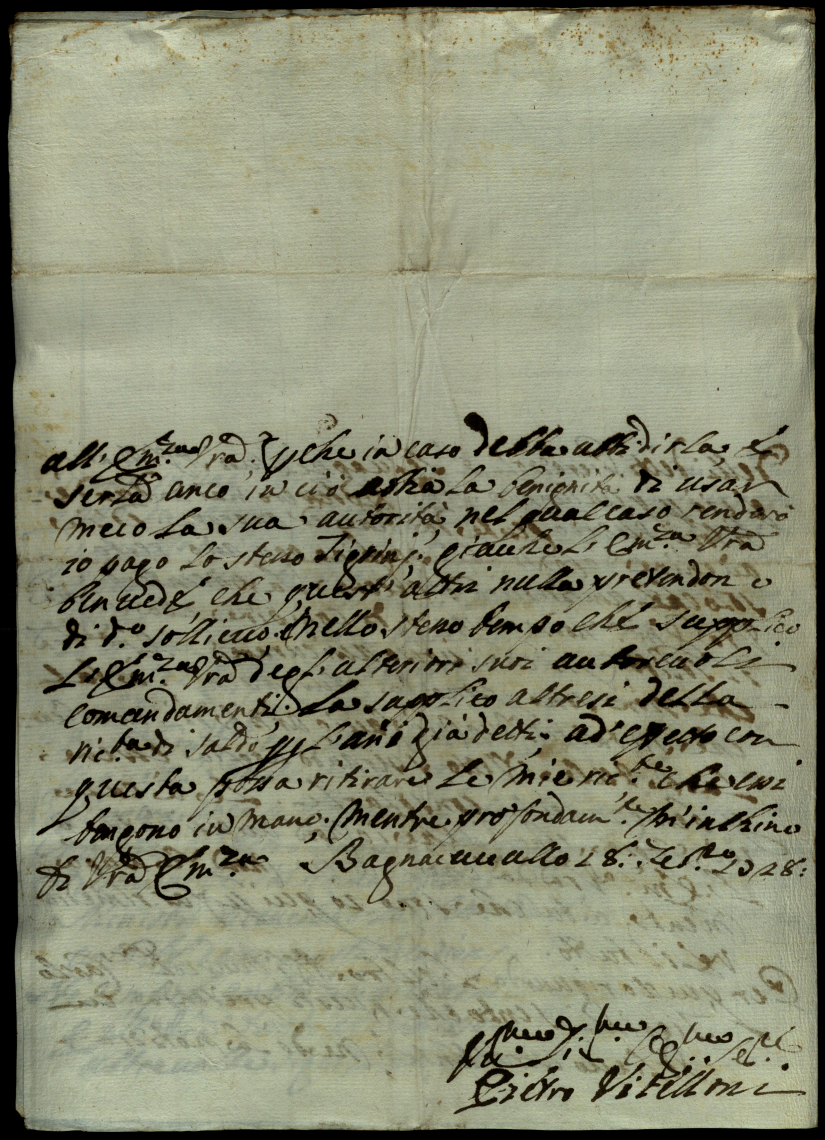 all' Em.za Vra, che in caso debba
senza anco in ciò la benignità di usar
meco la sua autorità, nel qual caso renderò
io pago lo steso Tignini, giache l'Em.za Vra
ben vede, che quest' altri nulla pretendon
di d.o sollievo. Nello steso tempo che supplico
l'Em.za Vra degl' ulteriori suoi autorevoli
comandamenti, la supplico altresi della
ric.ta di saldo p gl' anni già detti, ad' con
questa possa ritirare le mie ric.te che essi
tengono in mano. Mentre profondam.te m'inchino
di Vra Em.za Bagnacavallo 28:
Pietro Vitelloni